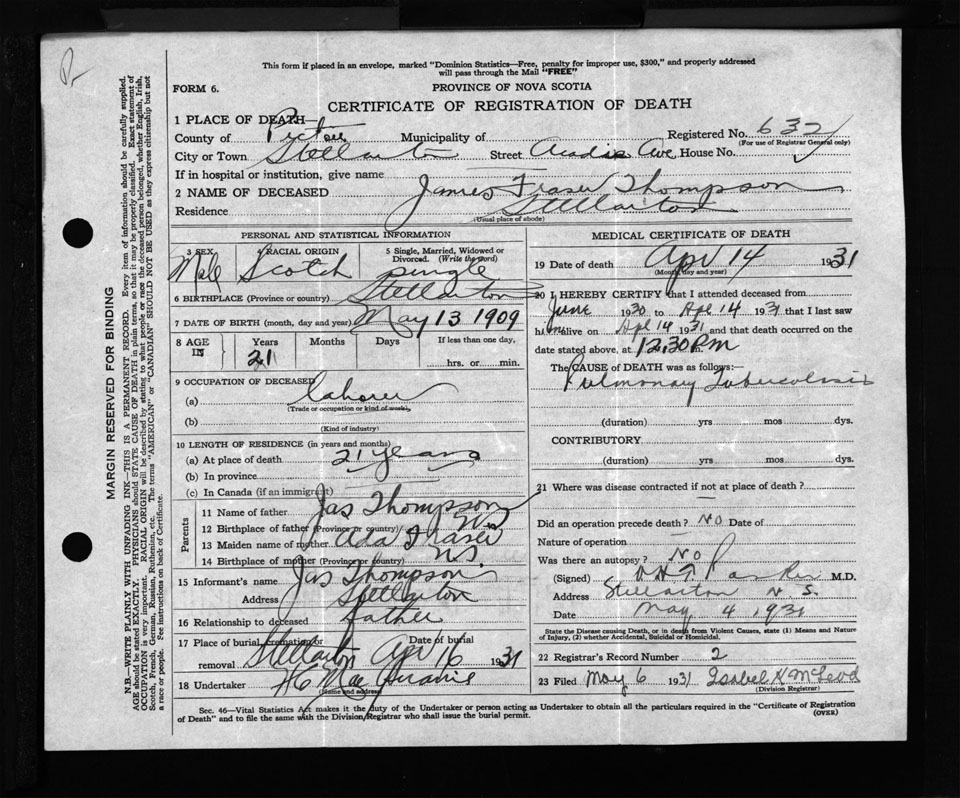 This form if placed in an envelope, marked "Dominion Statistics—Free, penalty for improper use, $300," and properly addressed
will pass through the Mail "FREE"
FORM 6.
PROVINCE OF NOVA SCOTIA
CERTIFICATE OF REGISTRATION OF DEATH
1 PLACE OF DEATH—
County of Pictou Municipality of Registered No. 632
(For use of Registrar General only)
City or Town Stellarton Street Acadia Ave House No.
If in hospital or institution, give name
2 NAME OF DECEASED James Fraser Thompson
Residence Stellarton
(Usual place of abode)
PERSONAL AND STATISTICAL INFORMATION
3 SEX 4 RACIAL ORIGIN 5 Single, Married, Widowed or Divorced. (Write the word)
Male Scotch single
6 BIRTHPLACE (Province or country) Stellarton
7 DATE OF BIRTH (month, day and year) May 13 1909
8 AGE IN Years Months Days If less than one day,
21 hrs. or min.
9 OCCUPATION OF DECEASED
(a) laborer
(Trade or occupation or kind of work)
(b)
(Kind of industry)
10 LENGTH OF RESIDENCE (in years and months)
(a) At place of death 21 years
(b) In province
(c) In Canada (if an immigrant)
Parents
11 Name of father Jas Thompson
12 Birthplace of father (Province or country)
13 Maiden name of mother Ada Fraser
14 Birthplace of mother (Province or country) N.S.
15 Informant's name Jas Thompson
Address Stellarton
16 Relationship to deceased father
17 Place of burial, cremation or removal Stellarton Date of burial Apr 16 1931
18 Undertaker
(Name and address)
MEDICAL CERTIFICATE OF DEATH
19 Date of death Apr 14 1931
(Month, day and year)
20 I HEREBY CERTIFY that I attended deceased from
June 1930 to Apl 14 1931 that I last saw
him alive on Apl 14 1931 and that death occurred on the
date stated above, at 12.30 P.m.
The CAUSE of DEATH was as follows:—
Pulmonary Tuberculosis
(duration) yrs mos dys.
CONTRIBUTORY
(duration) yrs mos dys.
21 Where was disease contracted if not at place of death?
Did an operation precede death? No Date of
Nature of operation
Was there an autopsy? No
(Signed) Parker M.D.
Address Stellarton N.S.
Date May 4 1931
State the Disease causing Death, or in death from Violent Causes, state (1) Means and Nature
of Injury, (2) whether Accidental, Suicidal or Homicidal.
22 Registrar's Record Number 2
23 Filed May 6 1931 Isabel H McLeod
(Division Registrar)
Sec. 46—Vital Statistics Act makes it the duty of the Undertaker or person acting as Undertaker to obtain all the particulars required in the "Certificate of Registration
of Death" and to file the same with the Division Registrar who shall issue the burial permit.
(OVER)
MARGIN RESERVED FOR BINDING
N.B.—WRITE PLAINLY WITH UNFADING INK—THIS IS A PERMANENT RECORD. Every item of information should be carefully supplied.
AGE should be stated EXACTLY. PHYSICIANS should STATE CAUSE OF DEATH in plain terms, so that it may be properly classified. Exact statement of
OCCUPATION is very important. RACIAL ORIGIN will be described by stating what people or race the deceased person belonged, whether English, Irish,
Scotch, French, German, Russian, Ruthenian, etc. The terms "AMERICAN" or "CANADIAN" SHOULD NOT BE USED as they express citizenship but not
a race or people. See instructions on back of Certificate.